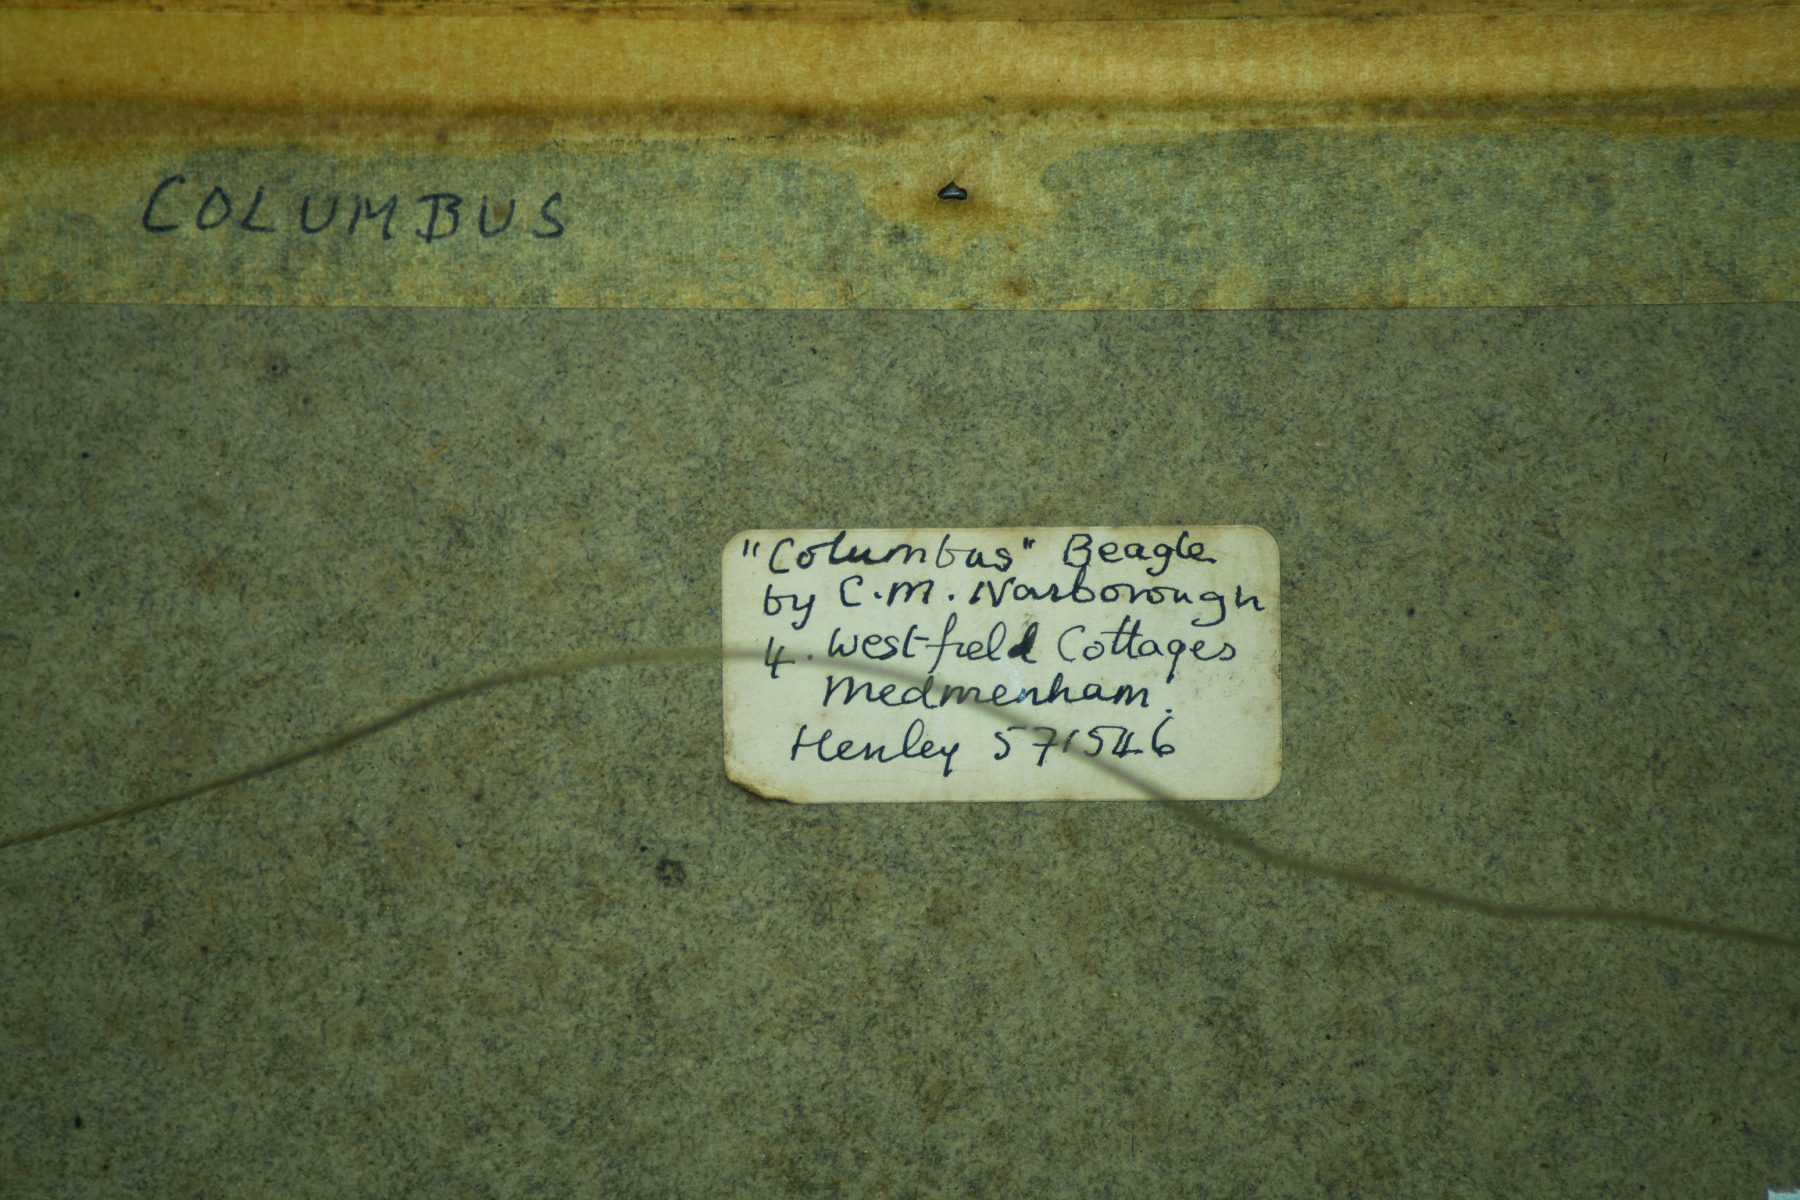 COLUMBUS
"Columbus" Beagle
by C.M. Narborough
4. Westfield Cottages
Medmenham.
Henley 571546